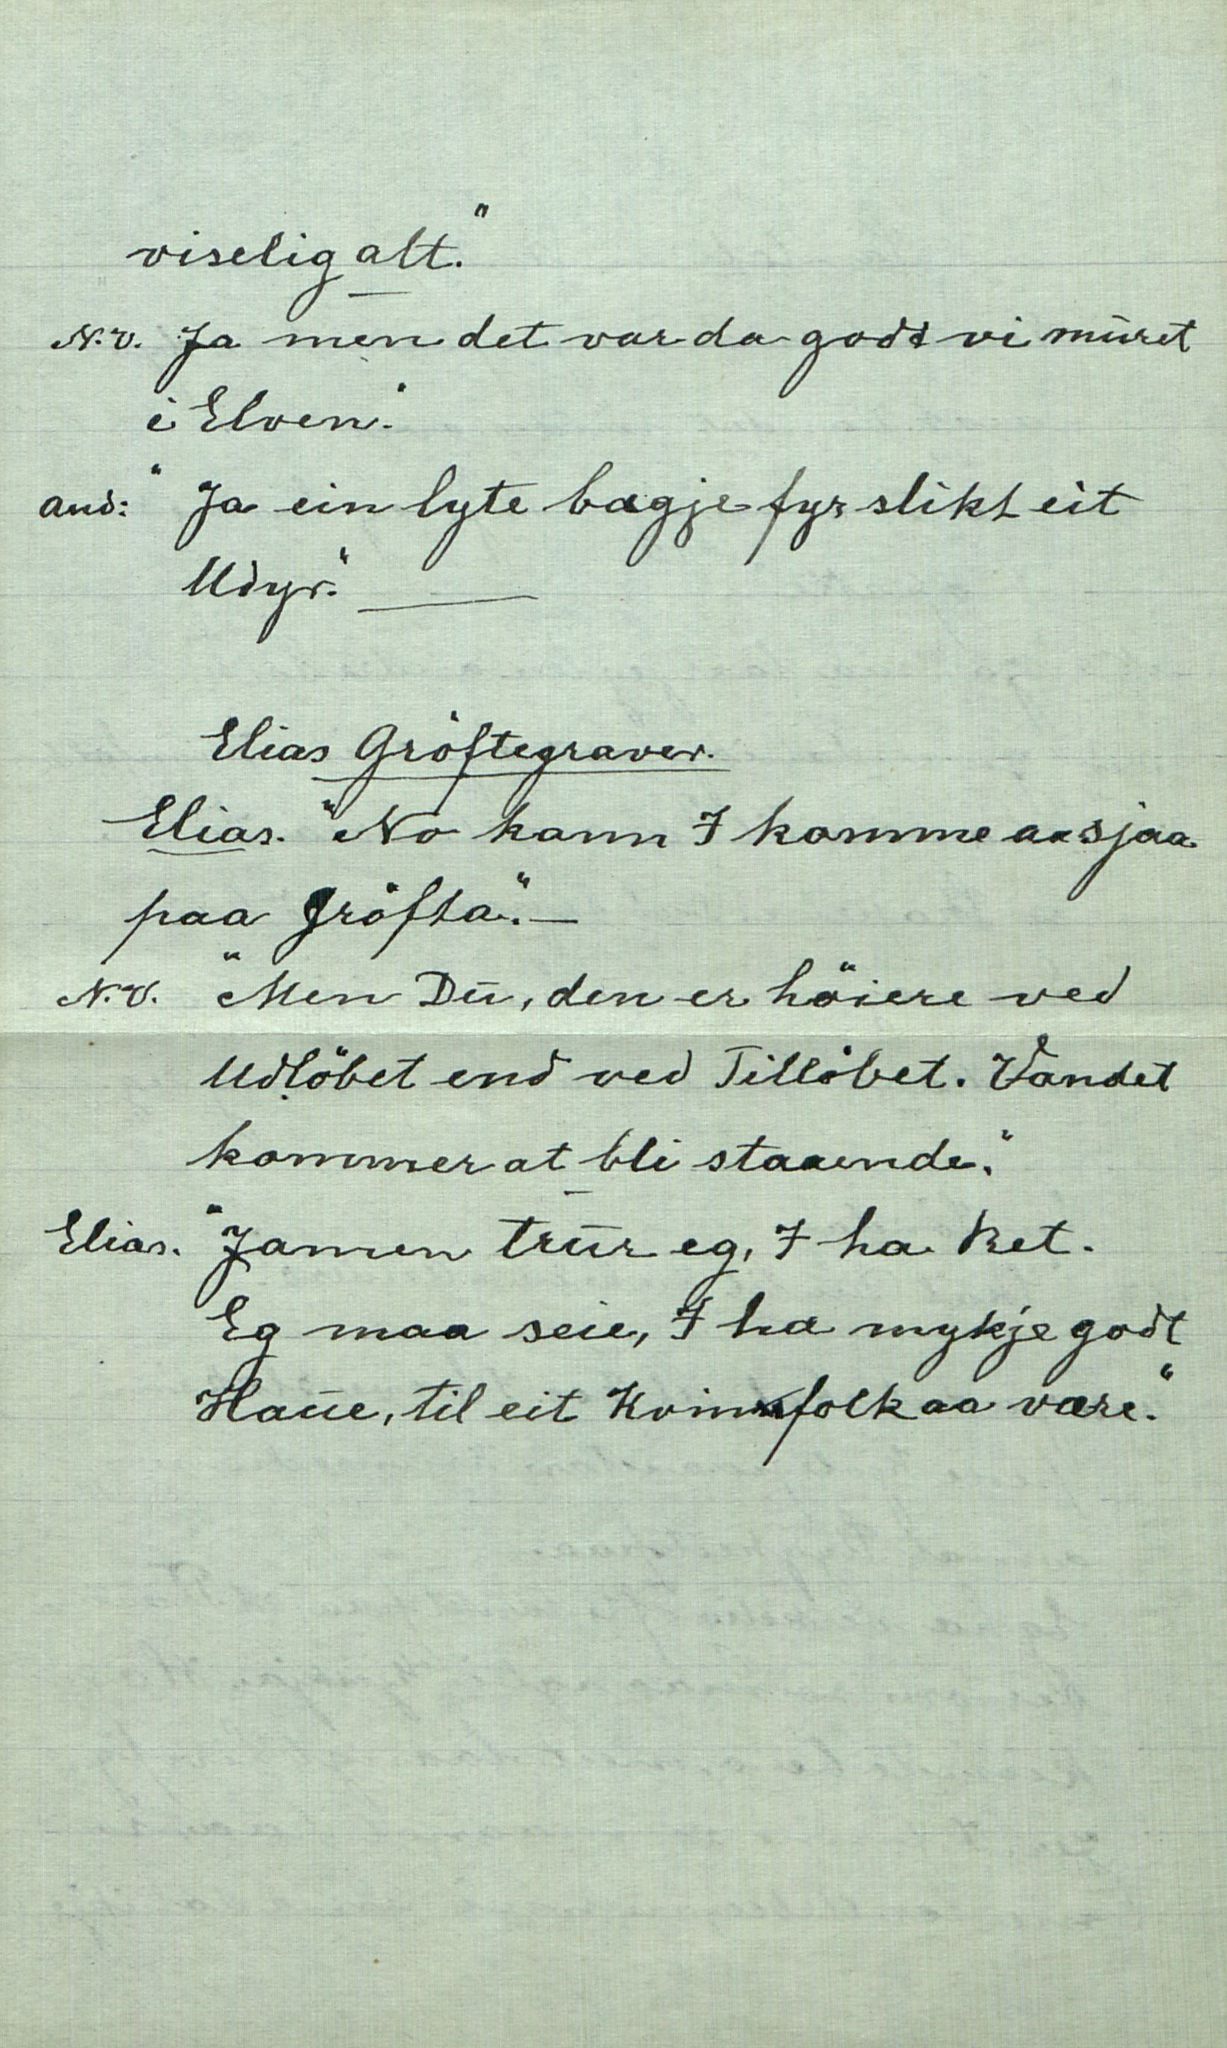 viselig alt."
N.V. Ja men det var da godt vi müret
i Elven."
And: "Ja ein lyte bægje fyr slikt eit
Udyr."
Elias Gröftegraver.
Elias. "No kann I komme aa sjaa
paa Gröfta". —
N.V. "Men Dü, den er höiere ved
Udlöbet end ved Tillöbet. Vandet
kommer at bli staaende."
Elias. "Jamen trür eg, I ha Ret.
Eg maa seie, I ha mykje godt
Haüe, til eit Kvinfolk aa være."